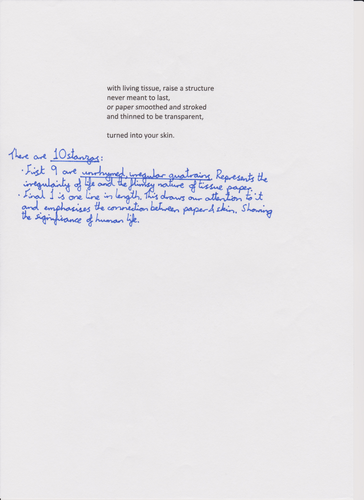 with living tissue, raise a structure
never meant to last,
of paper smoothed and stroked
and thinned to be transparent,
turned into your skin.
There are 10 stanzas:
• First 9 are unrhymed, irregular quatrains. Represents the
irregularity of life and the flimsy nature of tissue paper.
• Final 1 is one line in length. This draws our attention to it
and emphasises the connection between paper & skin. Showing
the significance of human life.